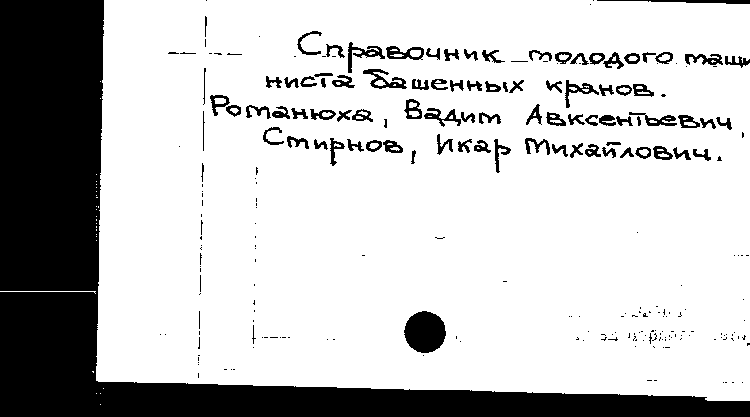 Справочник молодого маши
ниста башенных кранов.
Романюха, Вадим Авксентьевич,
Смирнов, Икар Михайлович.